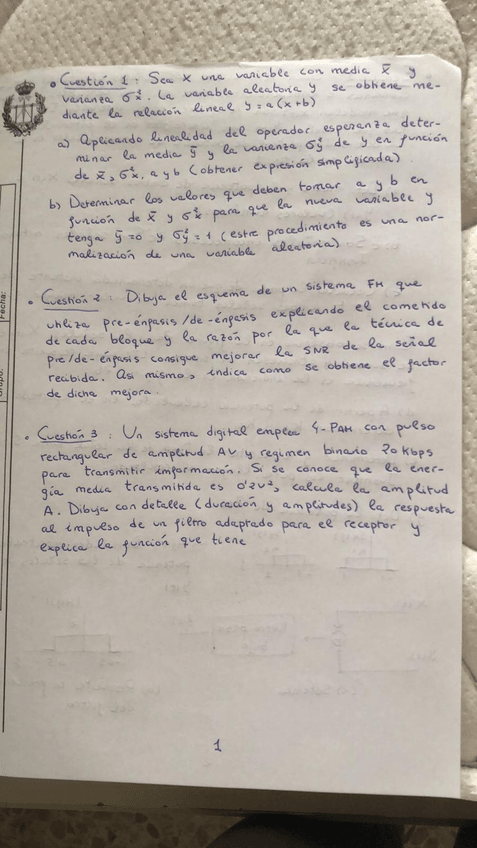 • Cuestión 1 : Sea X una variable con media x̄ y
varianza σ²x. La variable aleatoria y se obtiene me-
diante la relación lineal y = a(x+b)
a) Aplicando linealidad del operador esperanza deter-
minar la media ȳ y la varianza σ²y de y en función
de x̄, σ²x, a y b (obtener expresión simplificada).
b) Determinar los valores que deben tomar a y b en
función de x̄ y σ²x para que la nueva variable y
tenga ȳ=0 y σ²y=1 (este procedimiento es una nor-
malización de una variable aleatoria)
• Cuestión 2 : Dibuja el esquema de un sistema FM que
utiliza pre-énfasis/de-énfasis explicando el cometido
de cada bloque y la razón por la que la técnica de
pre/de-énfasis consigue mejorar la SNR de la señal
recibida. Asi mismo, indica como se obtiene el factor
de dicha mejora.
• Cuestión 3 : Un sistema digital emplea 4-PAM con pulso
rectangular de amplitud AV y regimen binario 20 Kbps
para transmitir información. Si se conoce que la ener-
gía media transmitida es 0'2V², calcula la amplitud
A. Dibuja con detalle (duración y amplitudes) la respuesta
al impulso de un filtro adaptado para el receptor y
explica la función que tiene
1
Fecha:
Grupo: